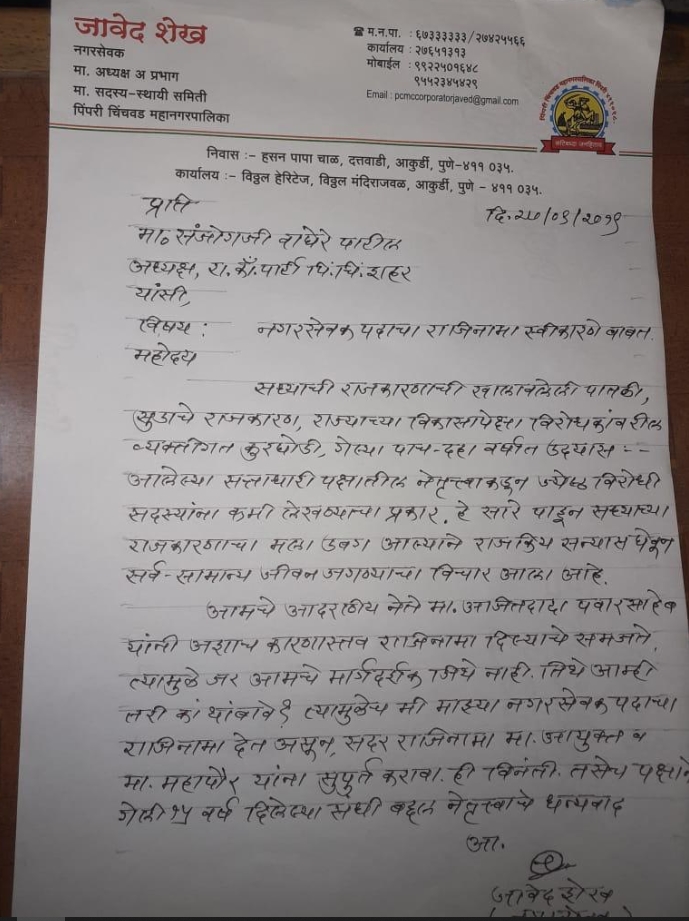 जावेद शेख
नगरसेवक
मा. अध्यक्ष अ प्रभाग
मा. सदस्य-स्थायी समिती
पिंपरी चिंचवड महानगरपालिका
☎ म.न.पा. : ६७३३३३३३/२७४२५५६६
कार्यालय : २७६५१३१३
मोबाईल : ९९२२५०१६४८
९५५२३४५४२९
Email : pcmccorporatorjaved@gmail.com
निवास :- हसन पापा चाळ, दत्तवाडी, आकुर्डी, पुणे-४११ ०३५.
कार्यालय :- विठ्ठल हेरिटेज, विठ्ठल मंदिराजवळ, आकुर्डी, पुणे - ४११ ०३५.
प्रति
दि. २७/०९/२०१९
मा० संजोगजी वाघेरे पाटील
अध्यक्ष, रा.काँ.पार्टी पिं.चिं.शहर
यांसी,
विषय : नगरसेवक पदाचा राजिनामा स्वीकारणे बाबत.
महोदय
सध्याची राजकारणाची खालावलेली पातळी,
सुडाचे राजकारण, राज्याच्या विकासापेक्षा विरोधकांवरील
व्यक्तीगत कुरघोडी, गेल्या पाच-दहा वर्षात उदयास --
आलेल्या सत्ताधारी पक्षातील नेतृत्त्वाकडून ज्येष्ठ विरोधी
सदस्यांना कमी लेखण्याचा प्रकार. हे सारे पाहून सध्याच्या
राजकारणाचा मला उबग आल्याने राजकिय सन्यास घेवून
सर्व-सामान्य जीवन जगण्याचा विचार आला आहे.
आमचे आदरणीय नेते मा. अजितदादा पवार साहेब
यांनी अशाच कारणास्तव राजिनामा दिल्याचे समजते.
त्यामुळे जर आमचे मार्गदर्शक तिथे नाही. तिथे आम्ही
तरी का थांबावे? त्यामुळेच मी माझ्या नगरसेवक पदाचा
राजिनामा देत असून, सदर राजिनामा मा. आयुक्त व
मा. महापौर यांना सुपूर्त करावा. ही विनंती. तसेच पक्षाने
गेली १५ वर्ष दिलेल्या संधी बद्दल नेतृत्त्वाचे धन्यवाद
आ.
जावेद शेख